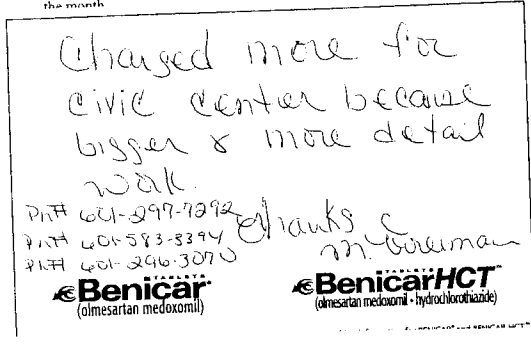 the month
Charged more for
civic center because
bigger & more detail
work.
Ph# 601-297-7292
Ph# 601-583-3394
Ph# 601-296-3070
Thanks
M.
TABLETS
Benicar
(olmesartan medoxomil)
TABLETS
BenicarHCT
(olmesartan medoxomil - hydrochlorothiazide)